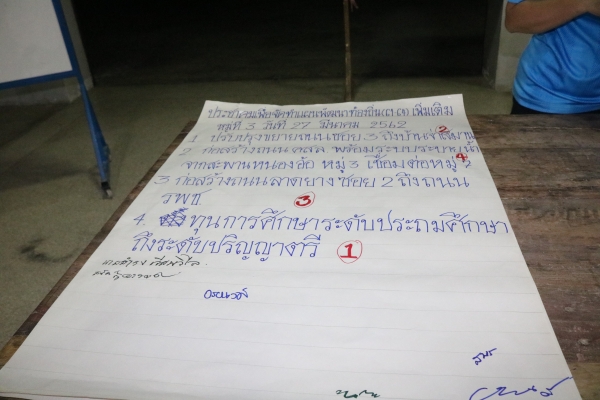 ประชาคมเพื่อจัดทำแผนพัฒนาท้องถิ่น เพิ่มเติม
หมู่ที่ 3 วันที่ 27 มีนาคม 2562
1. ปรับปรุงขยายถนนซอย 3 ถึงบ้าน 2
2. ก่อสร้างถนน คสล พร้อมระบบระบายน้ำ
จากสะพานหนองอ้อ หมู่ 3 เชื่อมต่อหมู่ 4
3 ก่อสร้างถนนลาดยาง ซอย 2 ถึงถนน
รพช 3
4. ทุนการศึกษาระดับประถมศึกษา
ถึงระดับปริญญาตรี 1